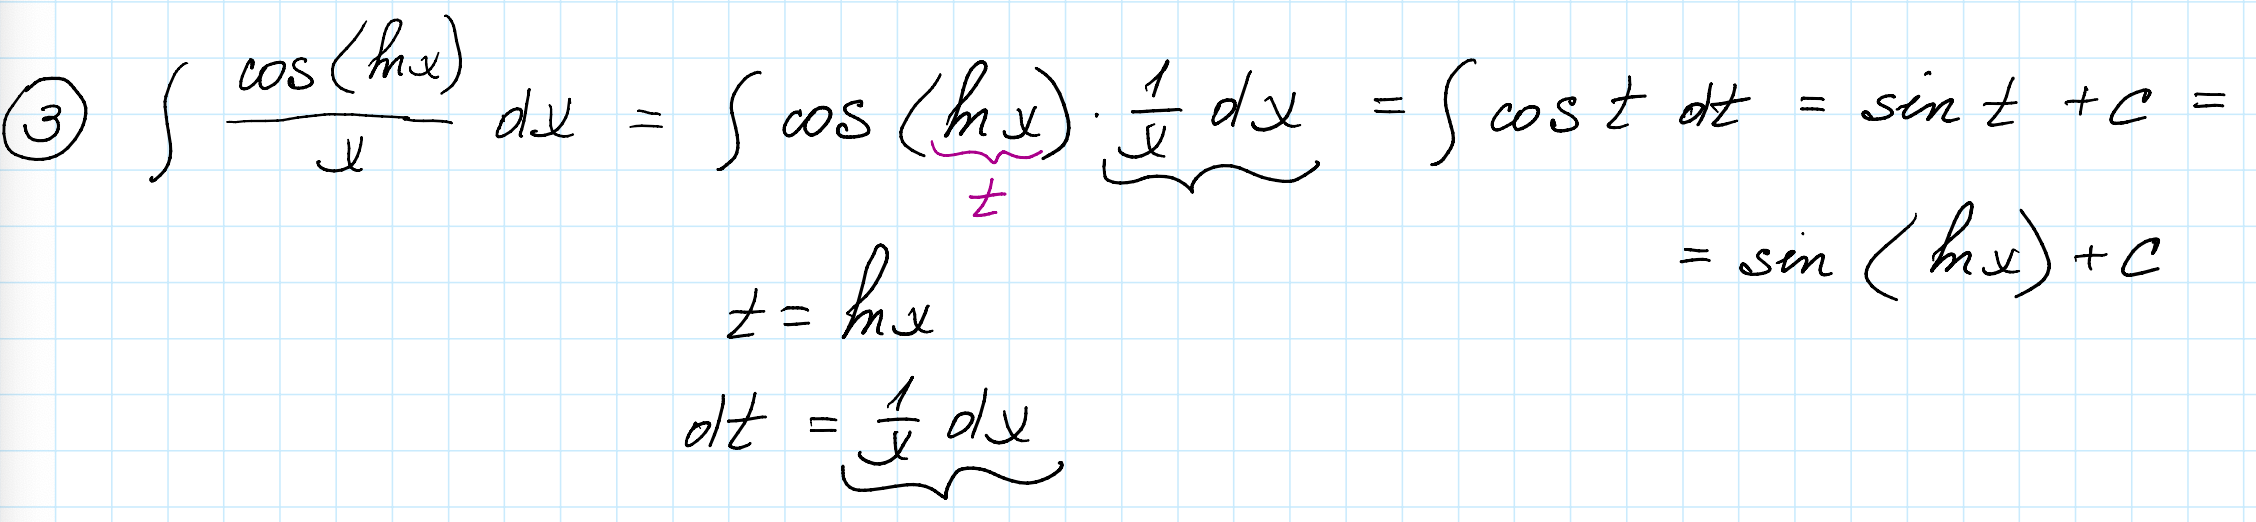 ③ ∫ cos(ln x)/x dx = ∫ cos(ln x) · 1/x dx = ∫ cos t dt = sin t + C =
t
= sin(ln x) + C
t = ln x
dt = 1/x dx